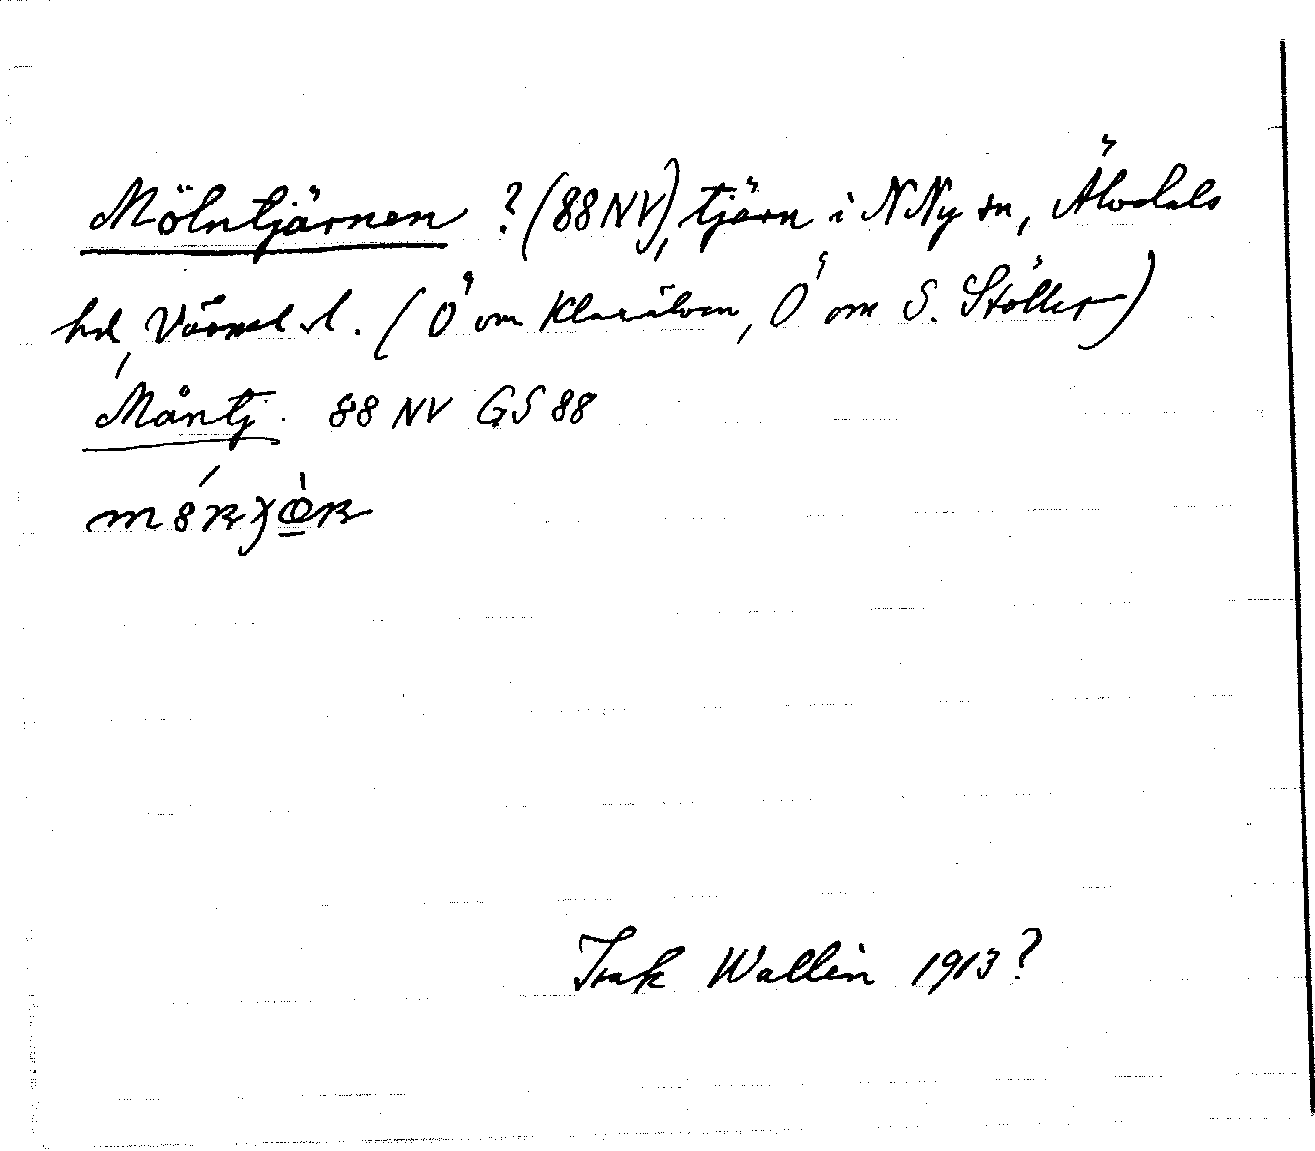 Mölntjärnen ? (88 NV), tjärn i N Ny sn, Älvdals
hd, Värml. l. (Ö om Klarälven, Ö om S. Stöllet)
Måntj. 88 NV GS 88
Isak Wallin 1913?